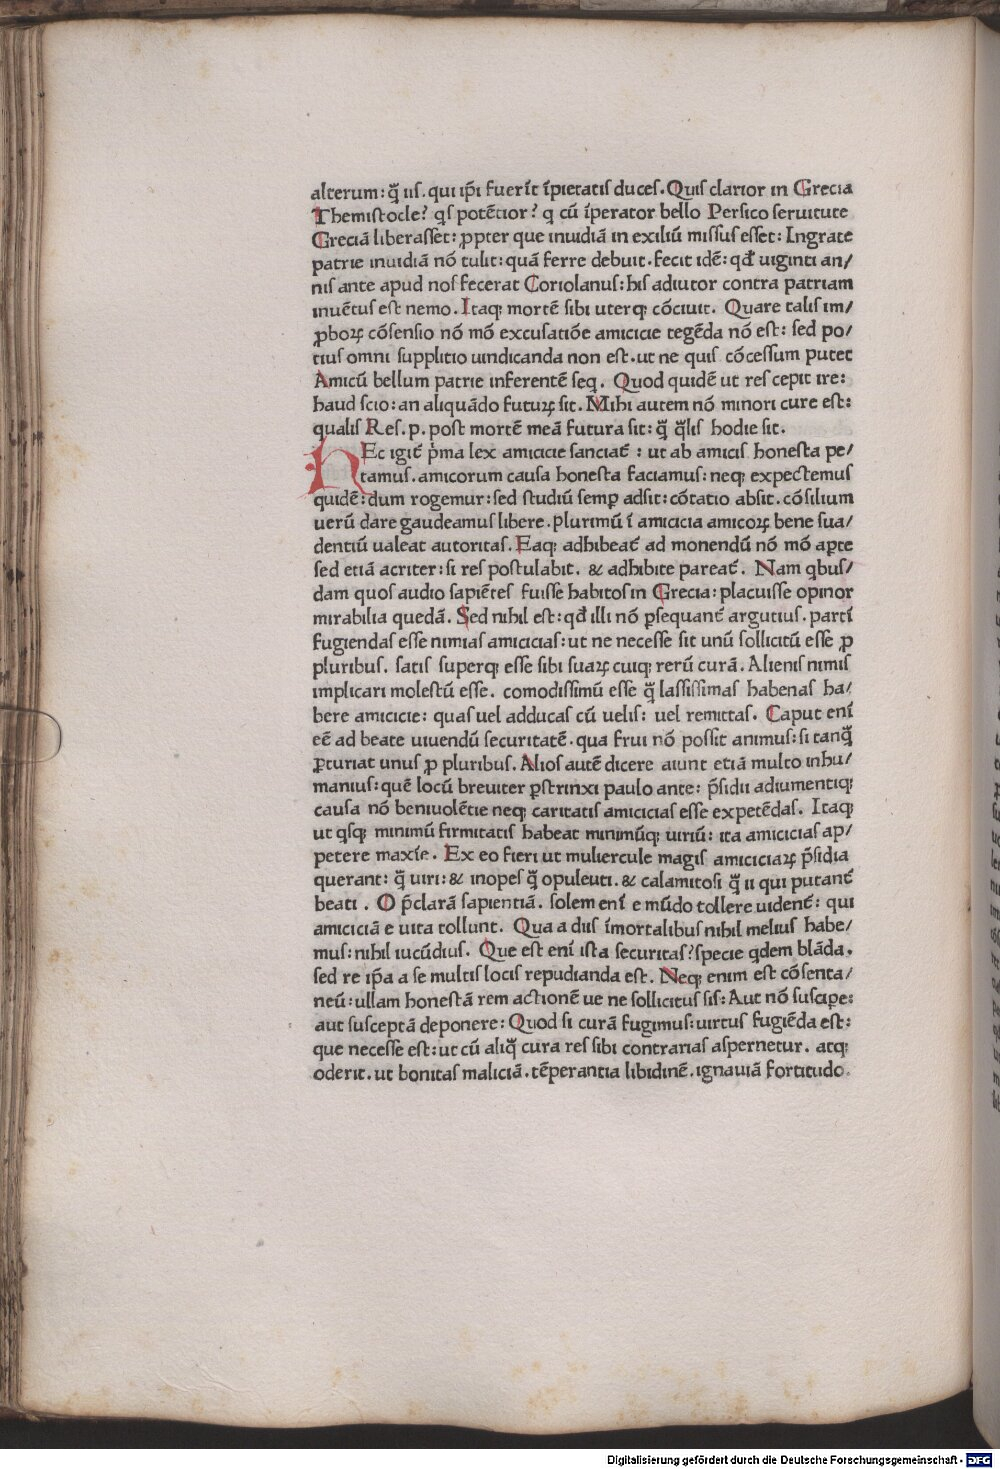 alterum: q̃ iis. qui ip̃i fuerīt īpietatis duces. Quis clarior in Grecia
Themistocle? qs potētior? q cū īperator bello Persico seruitute
Greciā liberasset: ꝓpter que inuidiā in exiliū missus esset: Ingrate
patrie inuidiā nō tulit: quā ferre debuit. fecit idē: qđ uiginti an/
nis ante apud nos fecerat Coriolanus: his adiutor contra patriam
inuētus est nemo. Itaqꝫ mortē sibi uterqꝫ cōciuit. Quare talis im/
ꝓboꝝ cōsensio nō mō excusatiōe amicicie tegēda nō est: sed po/
tius omni supplitio uindicanda non est. ut ne quis cōcessum putet
Amicū bellum patrie inferentē seq. Quod quidē ut res cepit ire:
haud scio: an aliquādo futuꝝ sit. Mihi autem nō minori cure est:
qualis Res. p. post mortē meā futura sit: q̃ q̃lis hodie sit.
HEc igit̃ p̃ma lex amicicie sanciat̃: ut ab amicis honesta pe/
tamus. amicorum causa honesta faciamus: neqꝫ expectemus
quidē: dum rogemur: sed studiū semꝑ adsit: cōtatio absit. cōsilium
uerū dare gaudeamus libere. plurimū ī amicicia amicoꝝ bene sua/
dentiū ualeat autoritas. Eaqꝫ adhibeat̃ ad monendū nō mō aꝑte
sed etiā acriter: si res postulabit. & adhibite pareat̃. Nam qbus/
dam quos audio sapiētes fuisse habitos in Grecia: placuisse opinor
mirabilia quedā. Sed nihil est: qđ illi nō ꝑsequant̃ argutius. partī
fugiendas esse nimias amicicias: ut ne necesse sit unū sollicitū esse ꝓ
pluribus. satis superqꝫ esse sibi suaꝝ cuiqꝫ rerū curā. Alienis nimis
implicari molestū esse. comodissimū esse q̃ lassissimas habenas ha/
bere amicicie: quas uel adducas cū uelis: uel remittas. Caput enī
eē ad beate uiuendū securitatē. qua frui nō possit animus: si tanq̃
ꝑturiat unus ꝓ pluribus. Alios autē dicere aiunt etiā multo inhu/
manius: quē locū breuiter ꝑstrinxi paulo ante: p̃sidii adiumentiqꝫ
causa nō beniuolētie neqꝫ caritatis amicicias esse expetēdas. Itaqꝫ
ut qsqꝫ minimū firmitatis habeat minimūqꝫ uiriū: ita amicicias ap/
petere maxīe. Ex eo fieri ut muliercule magis amiciciaꝝ p̃sidia
querant: q̃ uiri: & inopes q̃ opuleuti. & calamitosi q̃ ii qui putant̃
beati. O p̃clarā sapientiā. solem enī e mūdo tollere uident̃: qui
amiciciā e uita tollunt. Qua a diis īmortalibus nihil melius habe/
mus: nihil iucūdius. Que est enī ista securitas? specie qdem blāda.
sed re ip̃a a se multis locis repudianda est. Neqꝫ enim est cōsenta/
neū: ullam honestā rem actionē ue ne sollicitus sis: Aut nō susciꝑe:
aut susceptā deponere: Quod si curā fugimus: uirtus fugiēda est:
que necesse est: ut cū aliq̃ cura res sibi contrarias aspernetur. atqꝫ
oderit. ut bonitas maliciā. tēperantia libidinē. ignauiā fortitudo.
Digitalisierung gefördert durch die Deutsche Forschungsgemeinschaft - DFG